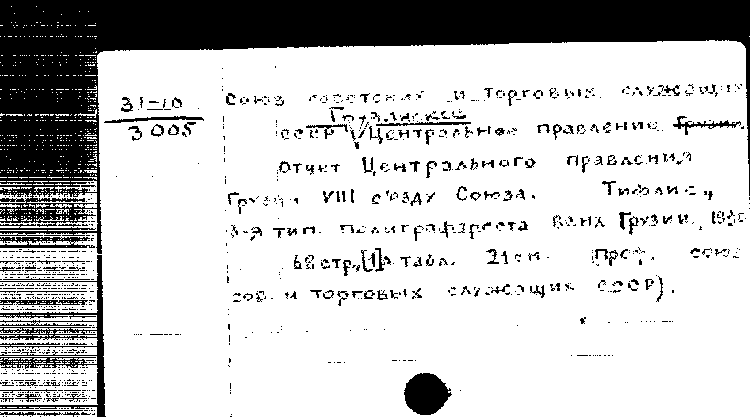 31-10
3005
Союз советских и торговых служащих
Грузинское
СССР Центральное правление Грузии
Отчет Центрального правления
Грузии VIII с'езду Союза. Тифлис,
3-я тип. Полиграфтреста ВСНХ Грузии,
68 стр., [1] л табл. 21 см. (Проф. союз
сов. и торговых служащих СССР).